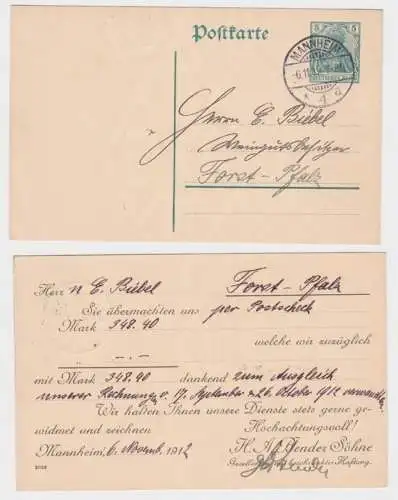 Postkarte
5 5
MANNHEIM
Herrn E. Bübel
Weingutsbesitzer
Forst – Pfalz
Herr n E. Bübel Forst – Pfalz
Sie übermachten uns per Postscheck
Mark 348.40
welche wir zuzüglich
„ –.–
mit Mark 348.40 dankend zum Ausgleich
unserer Rechnungen v. 17. September & 26. Oktober 1912 verwandten.
Wir halten Ihnen unsere Dienste stets gerne ge-
widmet und zeichnen Hochachtungsvoll!
Mannheim, 6. Novemb. 1912 H. A. Bender Söhne
Gesellschaft mit beschränkter Haftung.